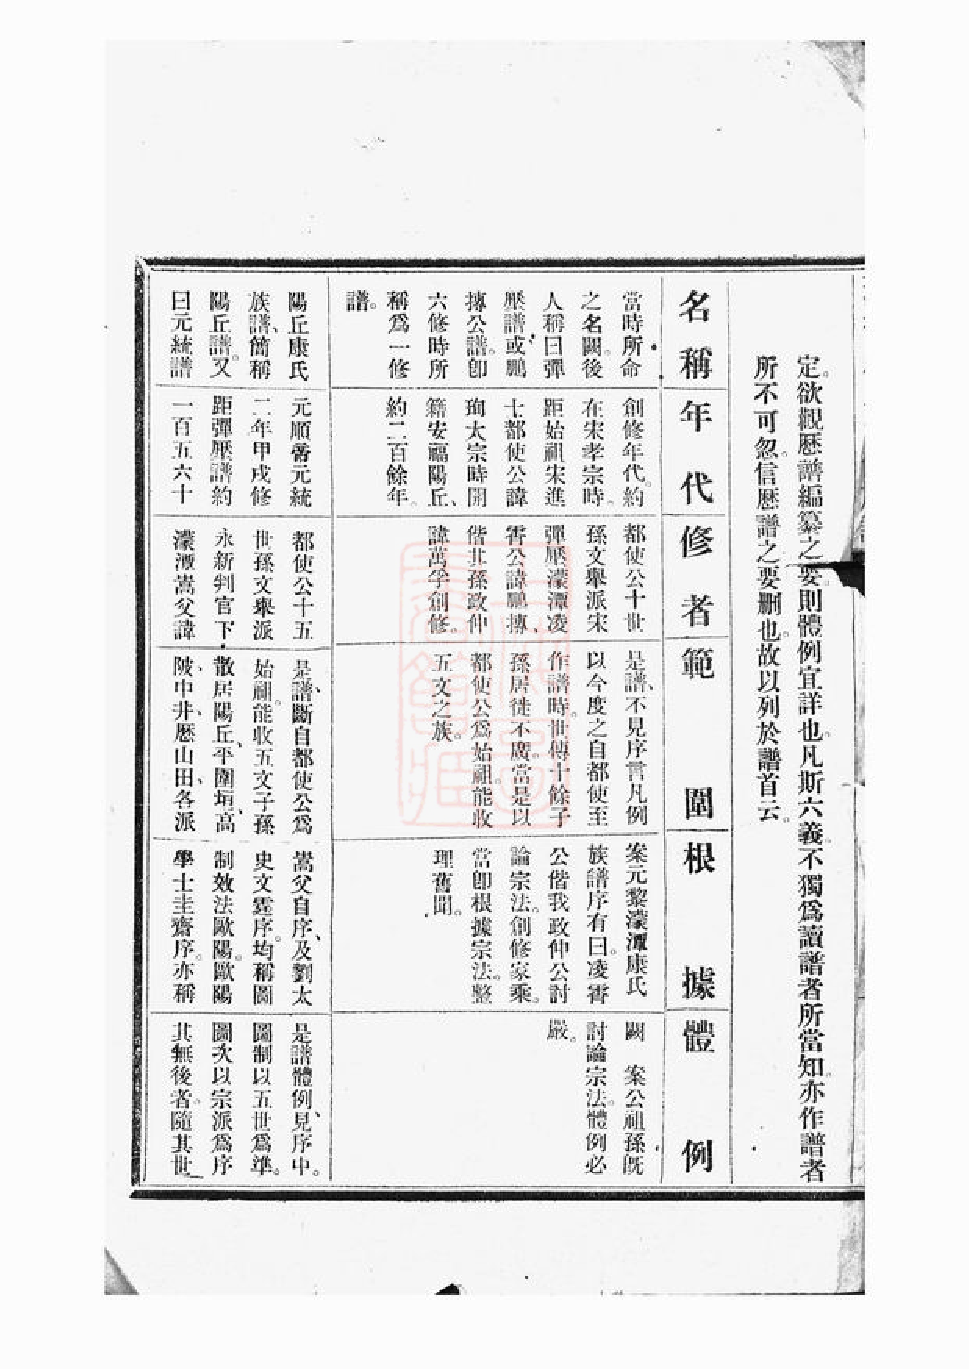 定。欲觀歷譜編纂之要則體例宜詳也。凡斯六義。不獨爲讀譜者所當知。亦作譜者
所不可忽。信歷譜之要刪也。故以列於譜首云。
名稱
年代
修者
範圍
根據
體例
當時所命
之名闕。後
人稱曰彈
壓譜、或鵬
摶公譜。卽
六修時所
稱爲一修
譜。
創修年代。約
在宋孝宗時。
距始祖宋進
士都使公諱
珣太宗時開
籍安福陽丘、
約二百餘年。
都使公十世
孫文舉派宋
彈壓濛潭凌
霄公諱鵬摶、
偕其孫政仲
諱萬孚創修。
是譜、不見序言凡例
以今度之自都使至
作譜時。世傳十餘。子
孫居徙不廣。當是以
都使公爲始祖。能收
五文之族。
案元黎濛潭康氏
族譜序有曰。凌霄
公偕我政仲公討
論宗法。創修家乘。
當卽根據宗法。整
理舊聞。
闕　案公祖孫旣
討論宗法。體例必
嚴。
陽丘康氏
族譜、簡稱
陽丘譜。又
曰元統譜
元順帝元統
二年甲戌修
距彈壓譜約
一百五六十
都使公十五
世孫文舉派
永新判官下
濛潭嵩父諱
是譜、斷自都使公爲
始祖。能收五文子孫
散居陽丘、平圍垇、高
陂、中井、歷山田、各派
嵩父自序、及劉太
史文霆序。均稱圖
制效法歐陽。歐陽
學士圭齋序。亦稱
是譜體例、見序中。
圖制以五世爲準。
圖次以宗派爲序
其無後者。隨其世